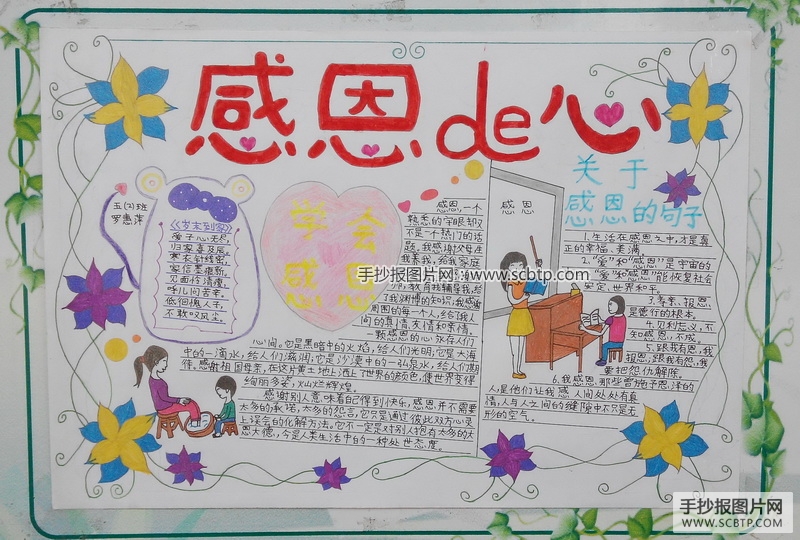 感恩de心
五(2)班
罗惠萍
《岁末到家》
爱子心无尽,
归家喜及辰。
寒衣针线密,
家信墨痕新。
见面怜清瘦,
呼儿问苦辛。
低徊愧人子,
不敢叹风尘。
学会
感恩
感恩,一个
熟悉的字眼却又
不是一个热门的话
题。我感谢父母生
我养我,给我家庭
手抄报图片网:www.scbtp.com
师,教育我辅导我,给
了我渊博的知识,我感谢
周围的每一个人,给了我人
间的真情、友情和亲情。
一颗感恩的心永存人们
心间。它是黑暗中的火焰,给人们光明;它是大海
中的一滴水,给人们滋润;它是沙漠中的一弘泉水,给人们期
待。感谢祖国母亲,在这片黄土地上洒上了世界的颜色,使世界变得
绚丽多姿,火山烂辉煌。
感谢别人意味着自己得到快乐,感恩并不需要
太多的承诺,太多的怨言,它只是通过彼此双方心灵
上误会的化解方法。它不一定是对别人抱有太多的大
恩大德,今是人类生活中的一种处世态度。
感恩
关于
感恩的句子
1.生活在感恩之中,才是真
正的幸福、美满。
2."爱"和"感恩"是宇宙的
"爱"和"感恩"能恢复社会
安定,世界和平。
3.孝亲、报恩
是德行的根本。
4.见利忘义,不
知感恩,不成。
5.跟我有恩,我
报恩,跟我有怨,我
要把怨仇解除。
6.我感恩,那些曾施予恩泽的
人,是他们让我感人间处处有真
情,人与人之间的缝隙中不只是无
形的空气。
手抄报图片网
WWW.SCBTP.COM